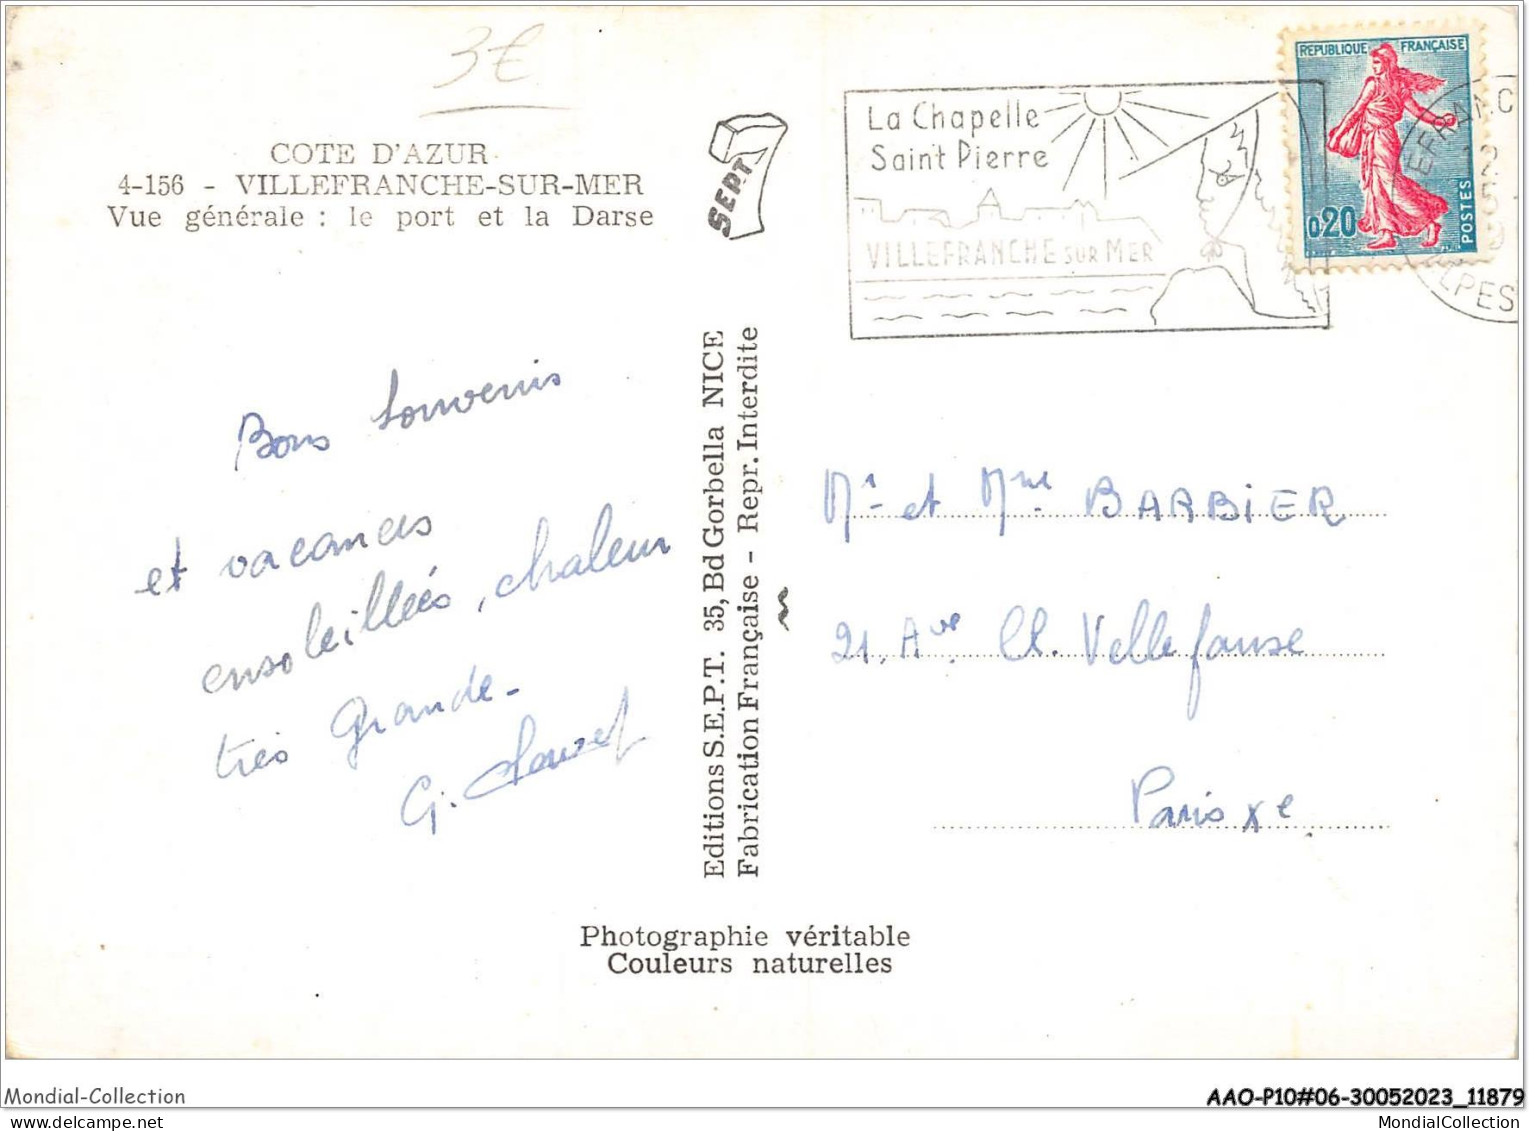 3€
COTE D'AZUR
4-156 - VILLEFRANCHE-SUR-MER
Vue générale : le port et la Darse
SEPT
La Chapelle
Saint Pierre
VILLEFRANCHE SUR MER
REPUBLIQUE FRANÇAISE
0,20
POSTES
EFRANC
LPES
Bons souvenirs
et vacances
ensoleillées, chaleur
très grande -
G.
Editions S.E.P.T. 35, Bd Gorbella NICE
Fabrication Française - Repr. Interdite
Mr et Mme BARBIER
21, Ave Cl. Vellefause
Paris Xe
Photographie véritable
Couleurs naturelles
Mondial-Collection
AAO-P10#06-30052023_11879
My favorites
MondialCollection